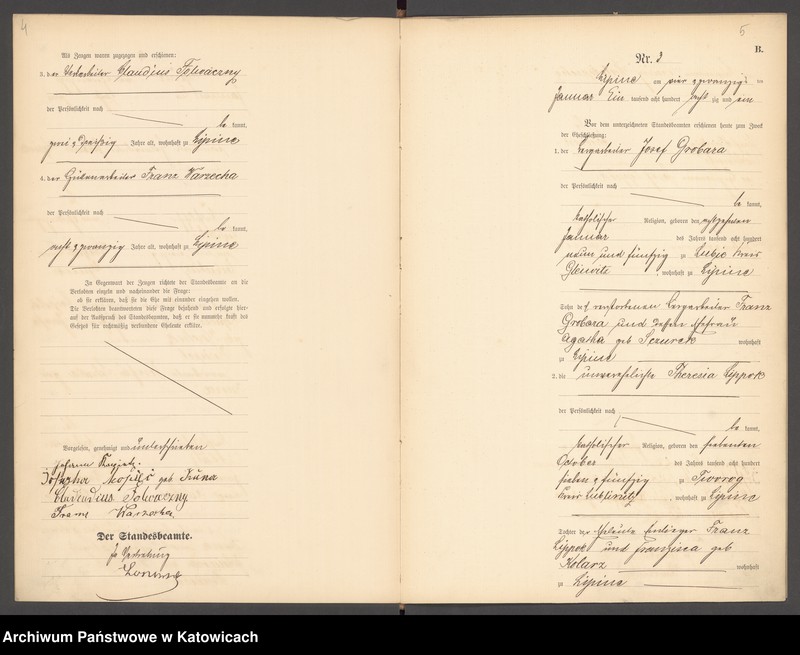 4
Als Zeugen waren zugezogen und erschienen:
3. der Claudius
der Persönlichkeit nach
be kannt,
Jahre alt, wohnhaft zu Lipine
4. der Franz Warzecha
der Persönlichkeit nach
be kannt,
acht u zwanzig Jahre alt, wohnhaft zu Lipine
In Gegenwart der Zeugen richtete der Standesbeamte an die
Verlobten einzeln und nacheinander die Frage:
ob sie erklären, daß sie die Ehe mit einander eingehen wollen.
Die Verlobten beantworteten diese Frage bejahend und erfolgte hier-
auf der Ausspruch des Standesbeamten, daß er sie nunmehr kraft des
Gesetzes für rechtmäßig verbundene Eheleute erkläre.
Vorgelesen, genehmigt und unterschrieben
Johann
geb
Claudius
Franz
Der Standesbeamte.
In Vertretung
5
B.
Nr. 3
Lipine am vier u zwanzigs ten
Januar Ein tausend acht hundert acht zig und ein
Vor dem unterzeichneten Standesbeamten erschienen heute zum Zweck
der Eheschließung:
1. der Bergarbeiter Josef Grobara
der Persönlichkeit nach
be kannt,
katholischer Religion, geboren den achtzehnten
Januar des Jahres tausend acht hundert
neun und fünfzig zu Lubie Kreis
Gleiwitz, wohnhaft zu Lipine
Sohn des verstorbenen Bergarbeiter Franz
Grobara und dessen Ehefrau
Agatha geb wohnhaft
zu Lipine
2. die unverehelichte Theresia Lippok
der Persönlichkeit nach
be kannt,
katholischer Religion, geboren den siebenten
October des Jahres tausend acht hundert
sieben u fünfzig zu Tworog
Kreis Lublinitz, wohnhaft zu Lipine
Tochter der Eheleute Franz
Lippok und Franzisca geb
Kolarz wohnhaft
zu Lipine
Archiwum Państwowe w Katowicach